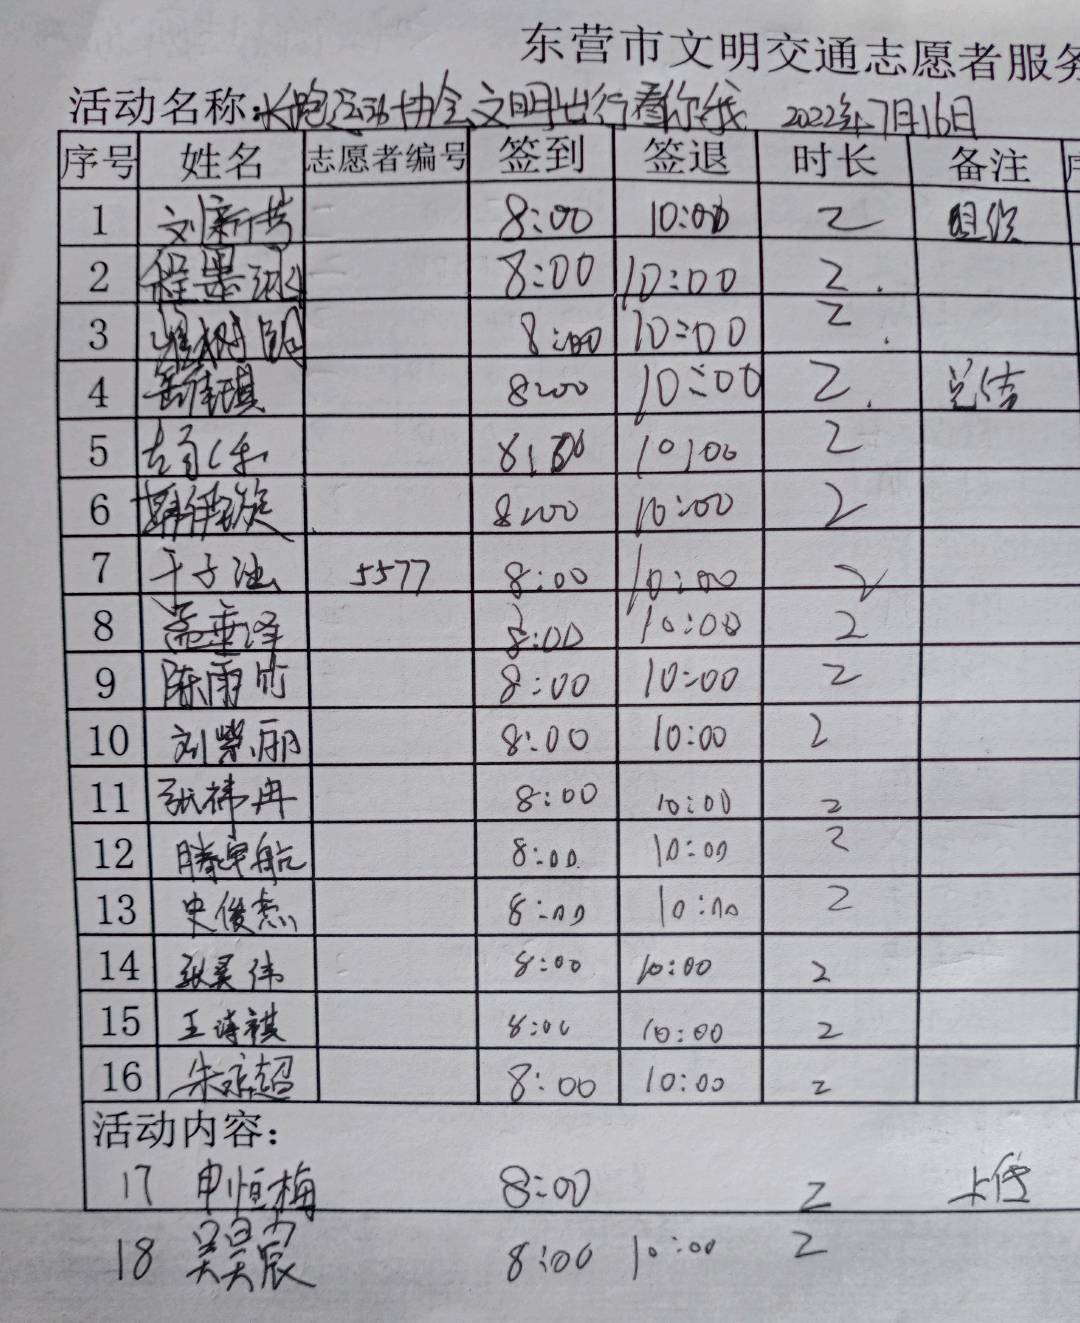 东营市文明交通志愿者服务
活动名称:长跑运动协会文明出行看你我 2022年7月16日
序号 姓名 志愿者编号 签到 签退 时长 备注
1 刘新芳 8:00 10:00 2 组织
2 8:00 10:00 2
3 8:00 10:00 2
4 8:00 10:00 2 总结
5 8:00 10:00 2
6 8:00 10:00 2
7 5577 8:00 10:00 2
8 孟垂泽 8:00 10:00 2
9 陈雨竹 8:00 10:00 2
10 刘紫丽 8:00 10:00 2
11 张祎冉 8:00 10:00 2
12 8:00 10:00 2
13 史俊杰 8:00 10:00 2
14 张昊伟 8:00 10:00 2
15 王诗祺 8:00 10:00 2
16 8:00 10:00 2
活动内容:
17 申恒梅 8:00 2 上传
18 吴昊宸 8:00 10:00 2